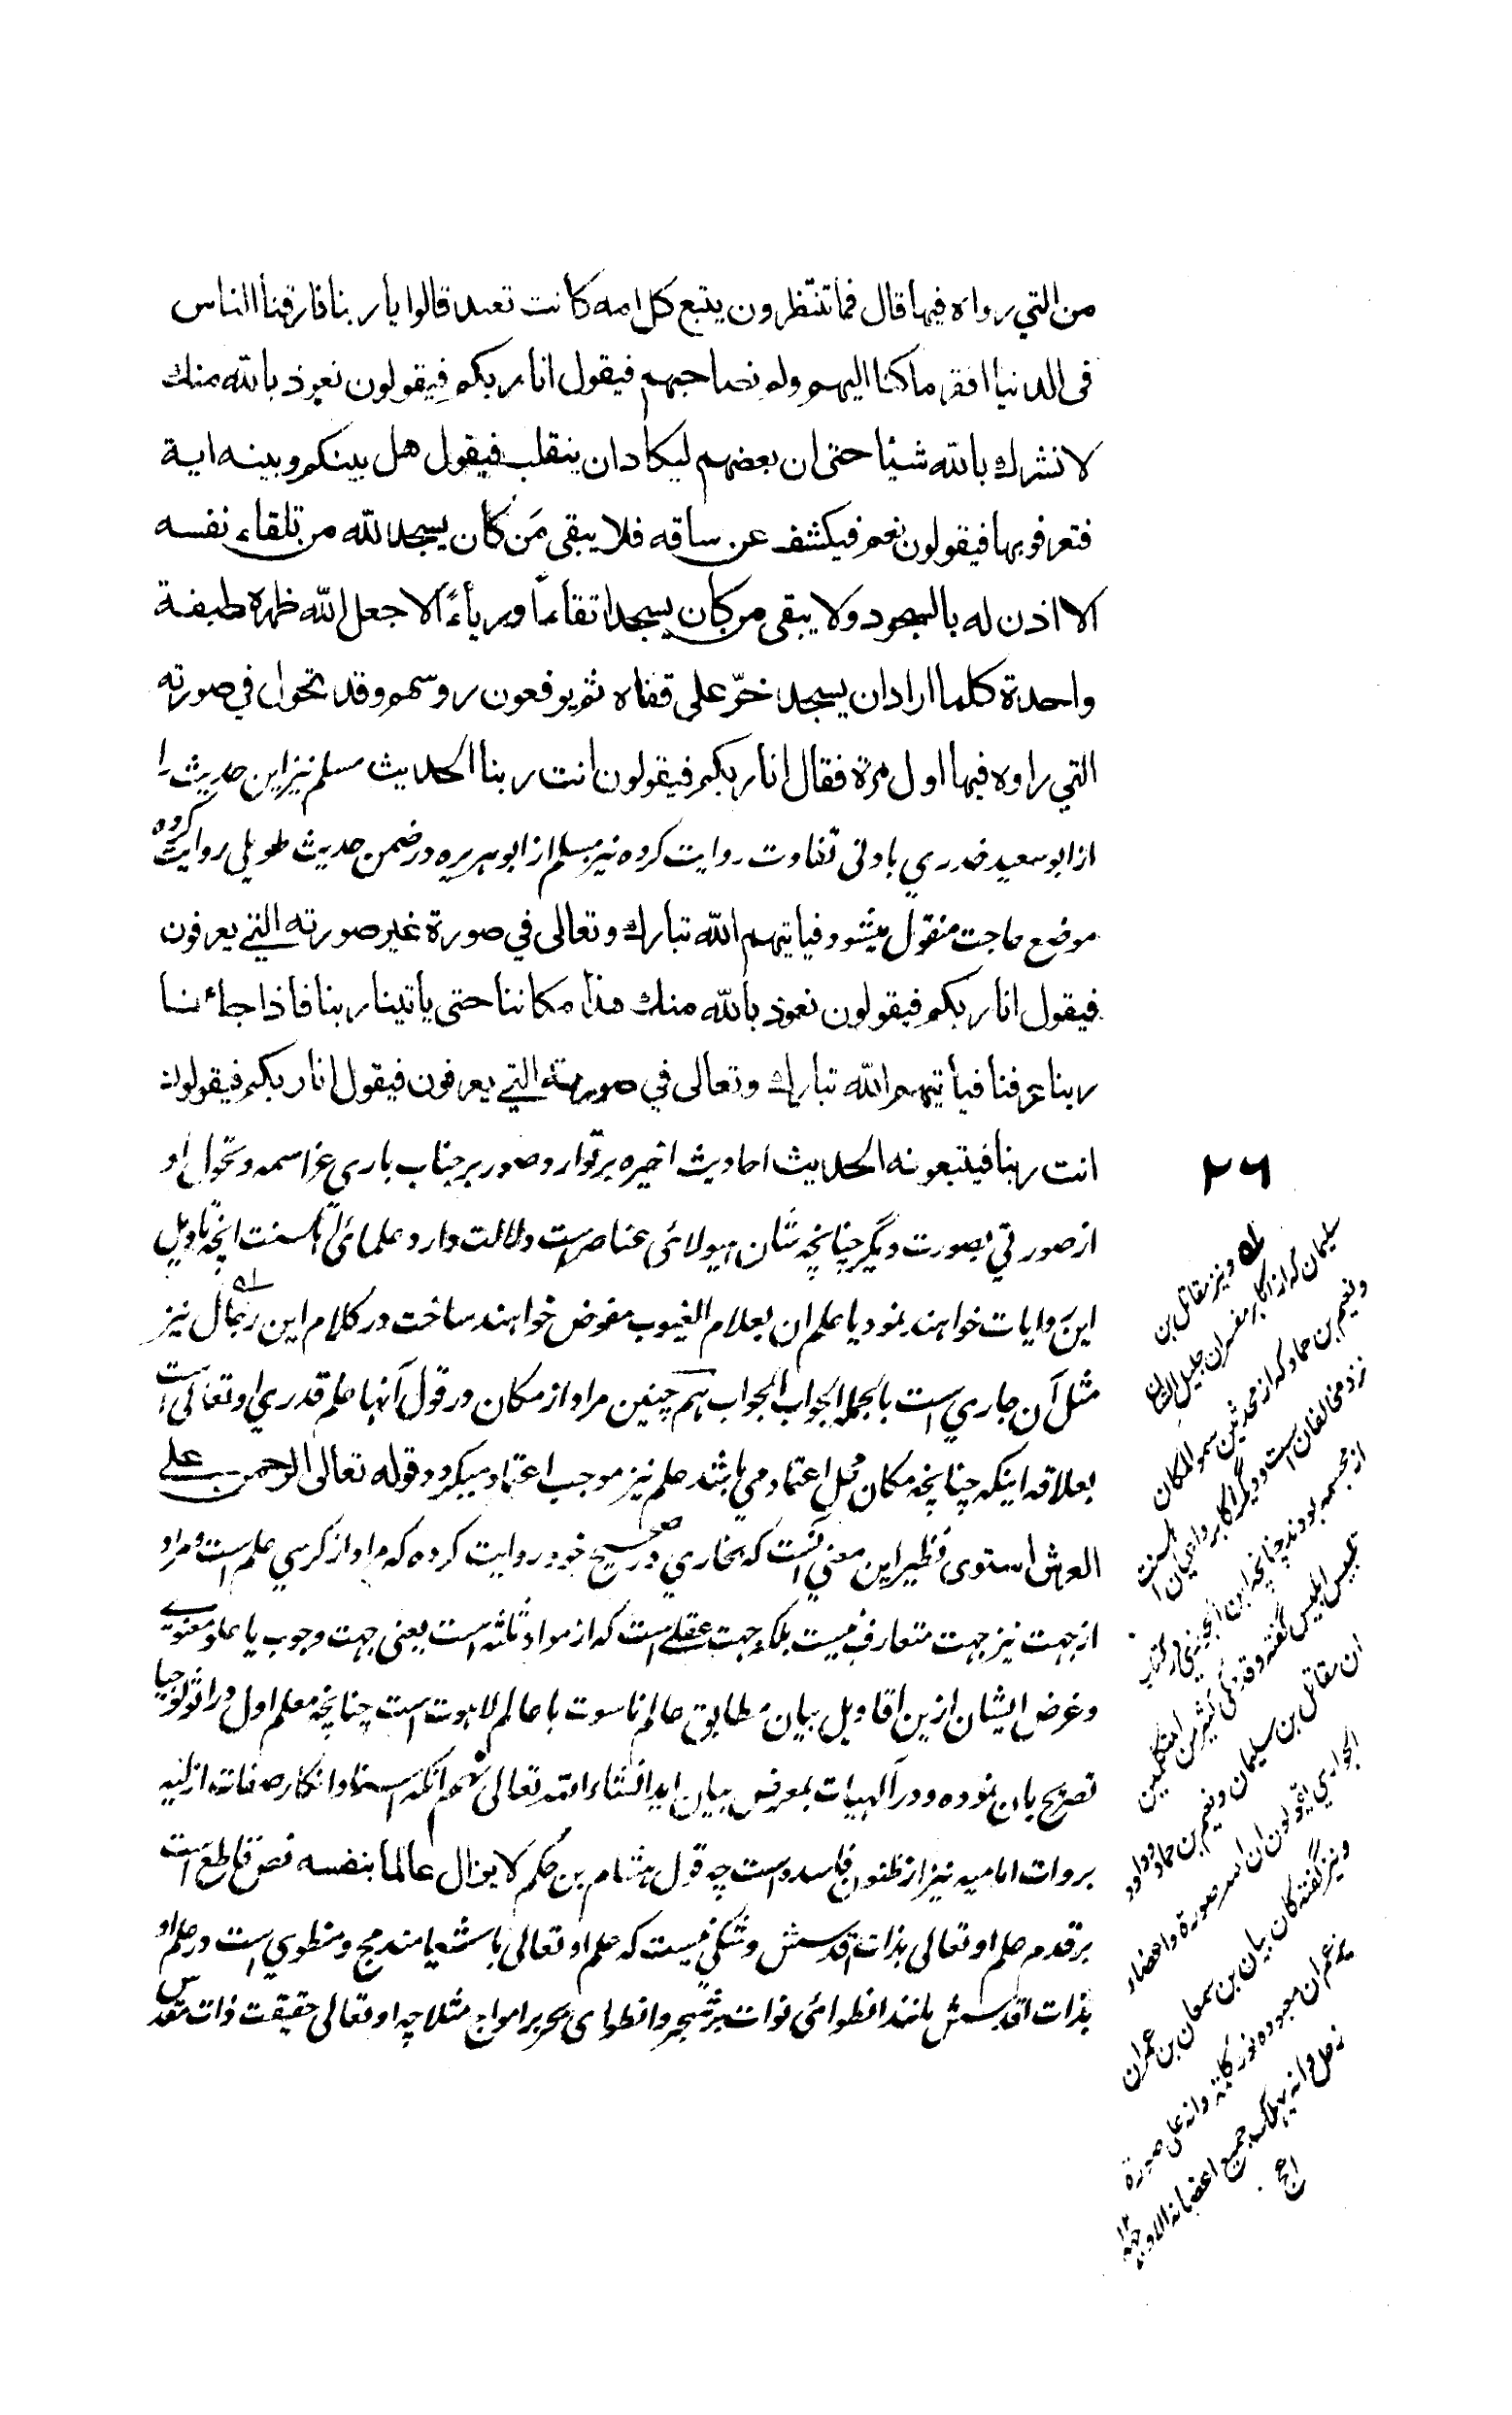 من التي رواه فيها قال فما تنتظرون يتبع كل امه كانت تعبد قالوا يا ربنا فارقنا الناس
فى الدنيا افقر ما كنا اليهم ولم نصاحبهم فيقول انا ربكم فيقولون نعوذ بالله منك
لا نشرك بالله شيئا حتى ان بعضهم ليكاد ان ينقلب فيقول هل بينكم وبينه اية
فتعرفوه بها فيقولون نعم فيكشف عن ساقه فلا يبقى مَن كان يسجد لله من تلقاء نفسه
الا اذن له بالسجود ولا يبقى من كان يسجد اتقاءاً ورياءً الا جعل الله ظهره طبقة
واحدة كلما اراد ان يسجد خرّ على قفاه ثم يرفعون روسهم وقد تحول في صورته
التي راوه فيها اول مرة فقال انا ربكم فيقولون انت ربنا الحديث مسلم نيز اين حديث را
از ابو سعيد خدري بادنى تفاوت روايت كرده نيز مسلم از ابو هريره در ضمن حديث طويلي روايت كرده
موضع حاجت منقول ميشود فياتيهم الله تبارك وتعالى في صورة غير صورته التي يعرفون
فيقول انا ربكم فيقولون نعوذ بالله منك هذا مكاننا حتى ياتينا ربنا فاذا جاءنا
ربنا عرفنا فيأتيهم الله تبارك وتعالى في صورته التي يعرفون فيقول انا ربكم فيقولون
انت ربنا فيتبعونه الحديث احاديث اخيره بر توارد صور بر جناب باري عز اسمه وتحول او
از صورتي بصورت ديگر چنانچه شان هيولائى عناصر است دلالت دارد علمائى اهلسنت انچه تاويل
اين روايات خواهند نمود يا علم ان بعلام الغيوب مفوض خواهند ساخت در كلام اين رجال نيز
مثل آن جاري است بالجمله الجواب الجواب هم چنين مراد از مكان در قول آنها علم قدري او تعالى است
بعلاقه اينكه چنانچه مكان محل اعتماد مي باشد علم نيز موجب اعتماد ميگردد قوله تعالى الرحمن على
العرش استوى نظير اين معني آنست كه بخاري در صحيح خود روايت كرده كه مراد از كرسي علم است ومراد
از جهت نيز جهت متعارف نيست بلكه جهت عقلي است كه از مواد ثلثه است يعنى جهت وجوب يا علو معنوي
وغرض ايشان ازين اقاويل بيان مطابق عالم ناسوت با عالم لاهوت است چنانچه معلم اول در اثولوجيا
تصريح بان نموده ودر آلهيات بمعرض بيان ايد انشاء الله تعالى انكه اسناد انكار صفات ازليه
بروات اماميه نيز از ظنون فاسده است چه قول هشام بن حكم لا يزال عالما بنفسه نص قاطع است
بر قدم علم او تعالى بذات اقدسش وشكي نيست كه علم او تعالى باشيا مندمج ومنطوي است در علم او
بذات اقدسش مانند انطوائى نوات بر شجر وانطواى بحر بر امواج مثلا چه او تعالى حقيقت ذات مقدس
٢٦
له ونيز مقاتل بن
سليمان كه از اكابر مفسران جليل الشان
ونعيم بن حماد كه از محدثين سمو المكان
نزد مخالفان است وديگر اكابر واعيان اهلسنت
از مجسمه بودند چنانچه ابن الجوزي در كتاب
تلبيس ابليس گفته وقد حكى كثير من المتكلمين
ان مقاتل بن سليمان ونعيم بن حماد وداود
الجواربي يقولون ان لله صورة واعضاء
ونيز گفته كان بيان بن سمعان بن عمران
يزعم ان معبوده نور كله وانه على صورة
رجل وانه يهلك جميع اعضائه الا وجهه
الخ ١٢